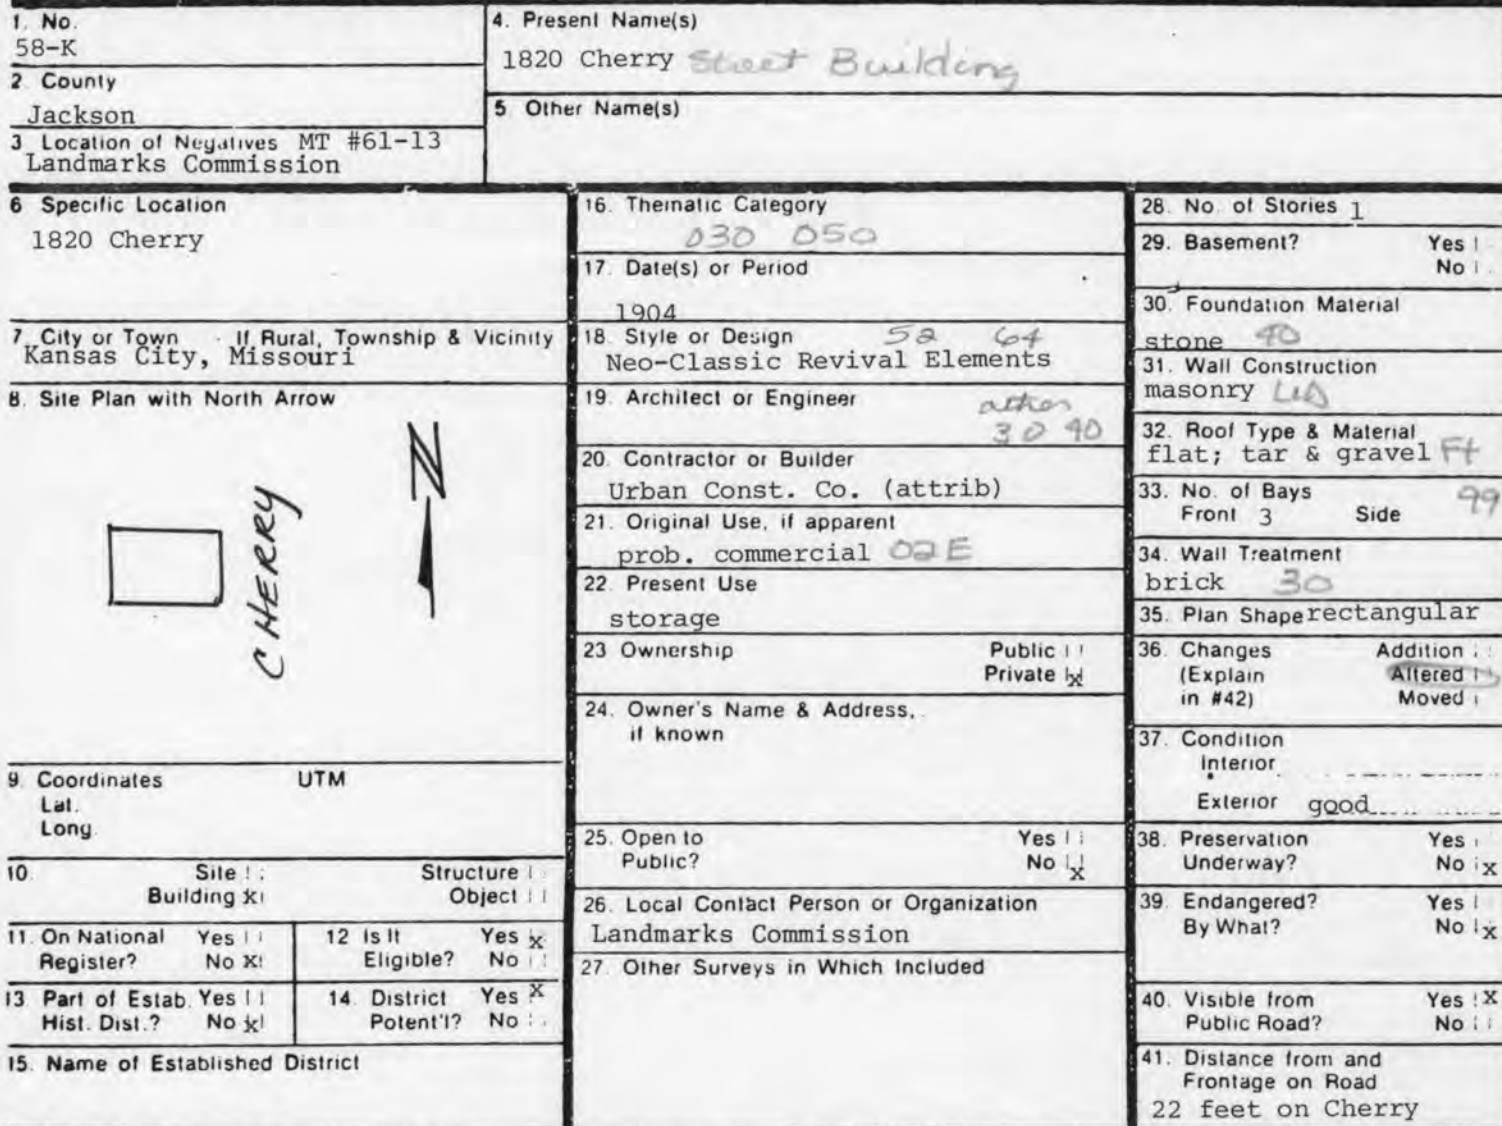 1. No.
58-K
2 County
Jackson
3 Location of Negatives MT #61-13
Landmarks Commission
4. Present Name(s)
1820 Cherry Street Building
5 Other Name(s)
6 Specific Location
1820 Cherry
7 City or Town If Rural, Township & Vicinity
Kansas City, Missouri
8. Site Plan with North Arrow
N
CHERRY
9. Coordinates UTM
Lat.
Long.
10. Site Structure
Building x Object
11. On National Yes
Register? No x
12 Is It Yes x
Eligible? No
13 Part of Estab. Yes
Hist. Dist.? No x
14. District Yes x
Potent'l? No
15. Name of Established District
16. Thematic Category
030 050
17. Date(s) or Period
1904
18. Style or Design 52 64
Neo-Classic Revival Elements
19. Architect or Engineer
30 40
20. Contractor or Builder
Urban Const. Co. (attrib)
21. Original Use, if apparent
prob. commercial 02E
22. Present Use
storage
23 Ownership Public
Private x
24. Owner's Name & Address,
if known
25. Open to Yes
Public? No x
26. Local Contact Person or Organization
Landmarks Commission
27. Other Surveys in Which Included
28. No. of Stories 1
29. Basement? Yes
No
30. Foundation Material
stone 40
31. Wall Construction
masonry
32. Roof Type & Material
flat; tar & gravel Ft
33. No. of Bays 99
Front 3 Side
34. Wall Treatment
brick 30
35. Plan Shape rectangular
36. Changes Addition
(Explain Altered
in #42) Moved
37. Condition
Interior
Exterior good
38. Preservation Yes
Underway? No x
39. Endangered? Yes
By What? No x
40. Visible from Yes x
Public Road? No
41. Distance from and
Frontage on Road
22 feet on Cherry